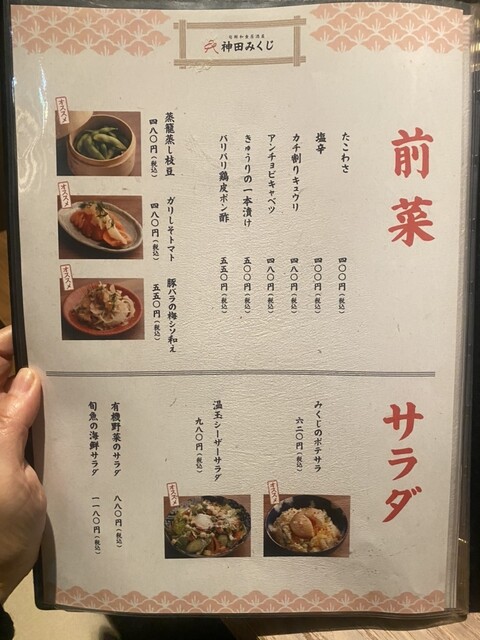 神田みくじ
前菜
たこわさ 四〇〇円(税込)
塩辛 四〇〇円(税込)
カチ割りキュウリ 四八〇円(税込)
アンチョビキャベツ 四八〇円(税込)
きゅうりの一本漬け 五〇〇円(税込)
パリパリ鶏皮ポン酢 五五〇円(税込)
オススメ
蒸籠蒸し枝豆
四八〇円(税込)
オススメ
ガリしそトマト
四八〇円(税込)
オススメ
豚バラの梅シソ和え
五五〇円(税込)
サラダ
みくじのポテサラ
六二〇円(税込)
オススメ
温玉シーザーサラダ
九八〇円(税込)
オススメ
有機野菜のサラダ 八八〇円(税込)
旬魚の海鮮サラダ 一一八〇円(税込)